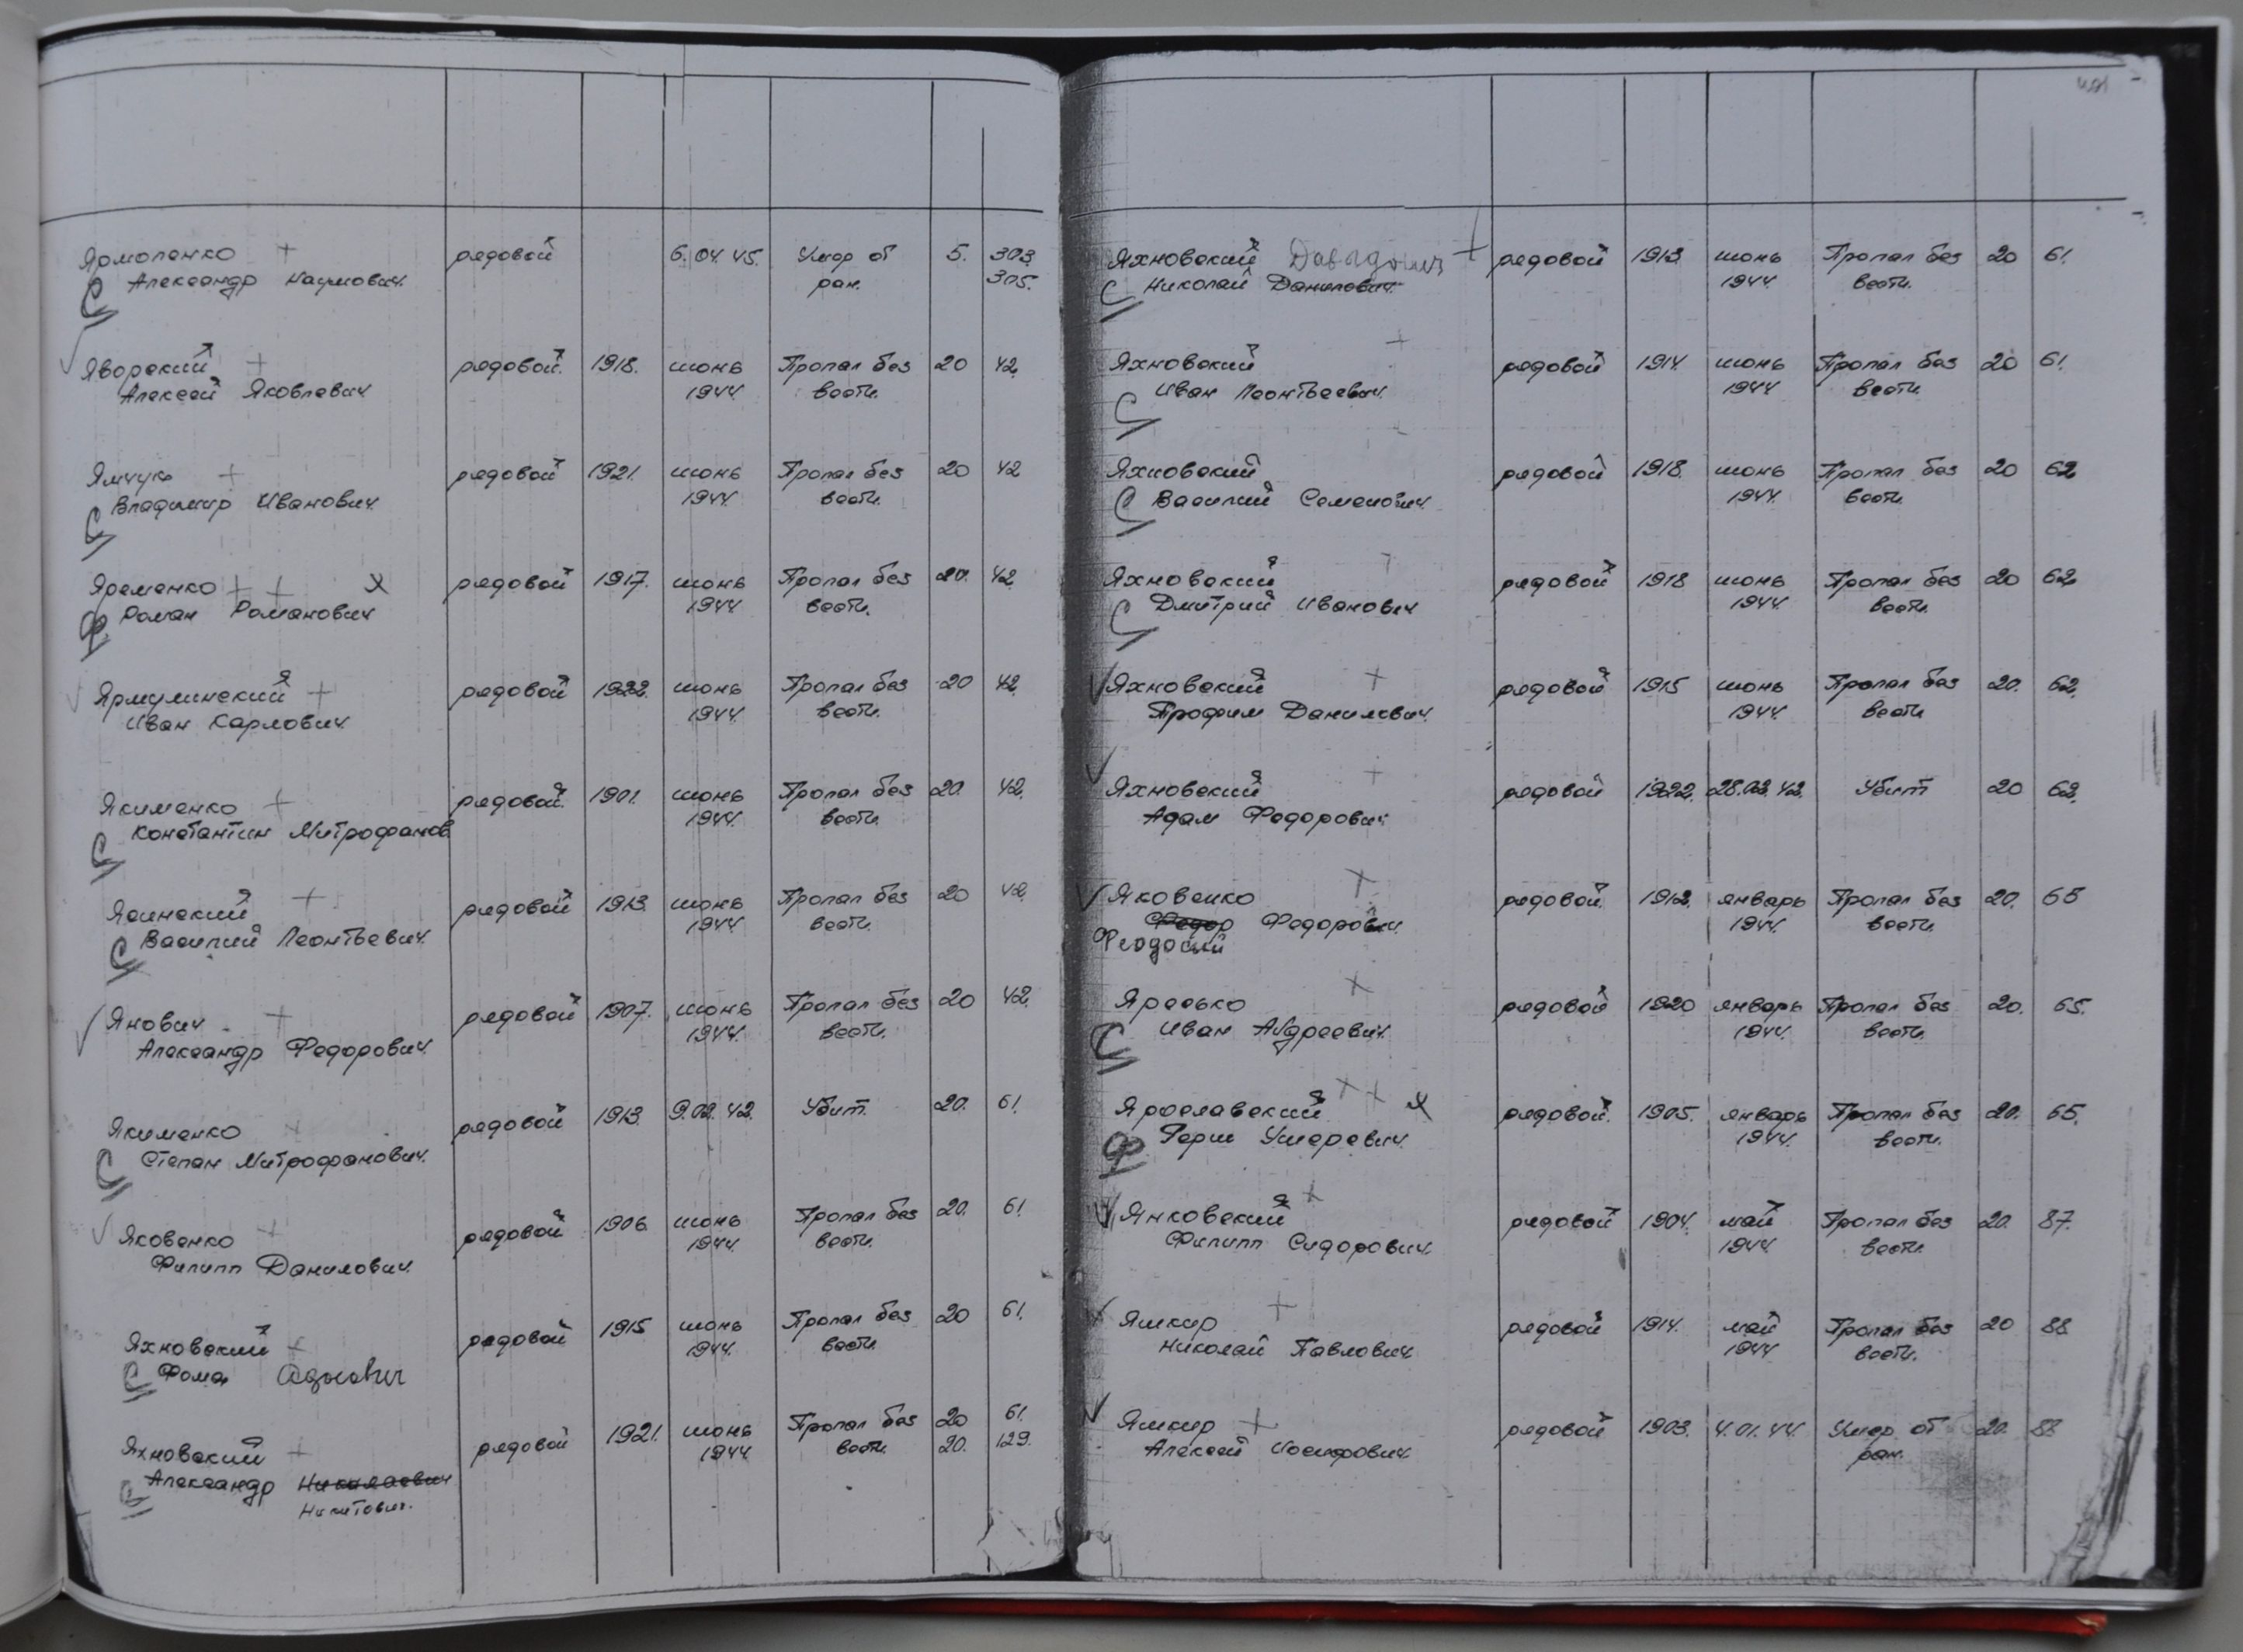 Ярмоленко + рядовой 6.04.45. Умер от 5. 303.
С Александр Наумович. ран. 305.
Яворский + рядовой. 1918. июнь Пропал без 20 42.
Алексей Яковлевич 1944. вести.
Ямчук + рядовой 1921. июнь Пропал без 20 42
С Владимир Иванович. 1944. вести.
Яременко + + х рядовой 1917. июнь Пропал без 20. 42
Ф Роман Романович 1944. вести.
Ярмулинский + рядовой 1922. июнь Пропал без 20 42.
Иван Карлович. 1944. вести.
Якименко + рядовой. 1901. июнь Пропал без 20. 42.
С Константин Митрофанов 1944. вести.
Ясинский + рядовой 1913. июнь Пропал без 20 42.
С Василий Леонтьевич. 1944. вести.
Янович + рядовой 1907. июнь Пропал без 20 42.
Александр Федорович. 1944. вести.
Якименко + рядовой 1913. 9.02.42. Убит. 20. 61.
С Степан Митрофанович.
Яковенко + рядовой 1906. июнь Пропал без 20. 61.
Филипп Данилович. 1944. вести.
Яхновский + рядовой 1915 июнь Пропал без 20 61.
С Фома 1944. вести.
Яхновский + рядовой 1921. июнь Пропал без 20 61.
С Александр Николаевич 1944 вести. 20. 129.
Никитович.
Яхновский Давыдович + рядовой 1913. июнь Пропал без 20 61.
С Николай Данилович 1944. вести.
Яхновский + рядовой 1914. июнь Пропал без 20 61.
С Иван Леонтьевич. 1944 вести.
Яхновский рядовой 1918. июнь Пропал без 20 62
С Василий Семенович. 1944. вести
Яхновский + рядовой 1918 июнь Пропал без 20 62
С Дмитрий Иванович 1944. вести.
Яхновский + рядовой 1915 июнь Пропал без 20. 62.
Трофим Данилович. 1944. вести
Яхновский + рядовой 1922. 28.02.42. Убит 20 62.
Адам Федорович.
Яковенко + рядовой. 1912. январь Пропал без 20. 65
Федор Федорович. 1944. вести.
Феодосий
Яресько + рядовой 1920 январь Пропал без 20. 65.
С Иван Андреевич. 1944. вести.
Ярославский + + х рядовой. 1905. январь Пропал без 20. 65.
Ф Герш Умеревич. 1944. вести.
Янковский + рядовой 1904. май Пропал без 20. 87.
Филипп Сидорович. 1944 вести.
Яшкир + рядовой 1914. май Пропал без 20 88
Николай Павлович. 1944 вести.
Яшкир + рядовой 1903. 4.01.44 Умер от 20. 88
Алексей Иосифович. ран.